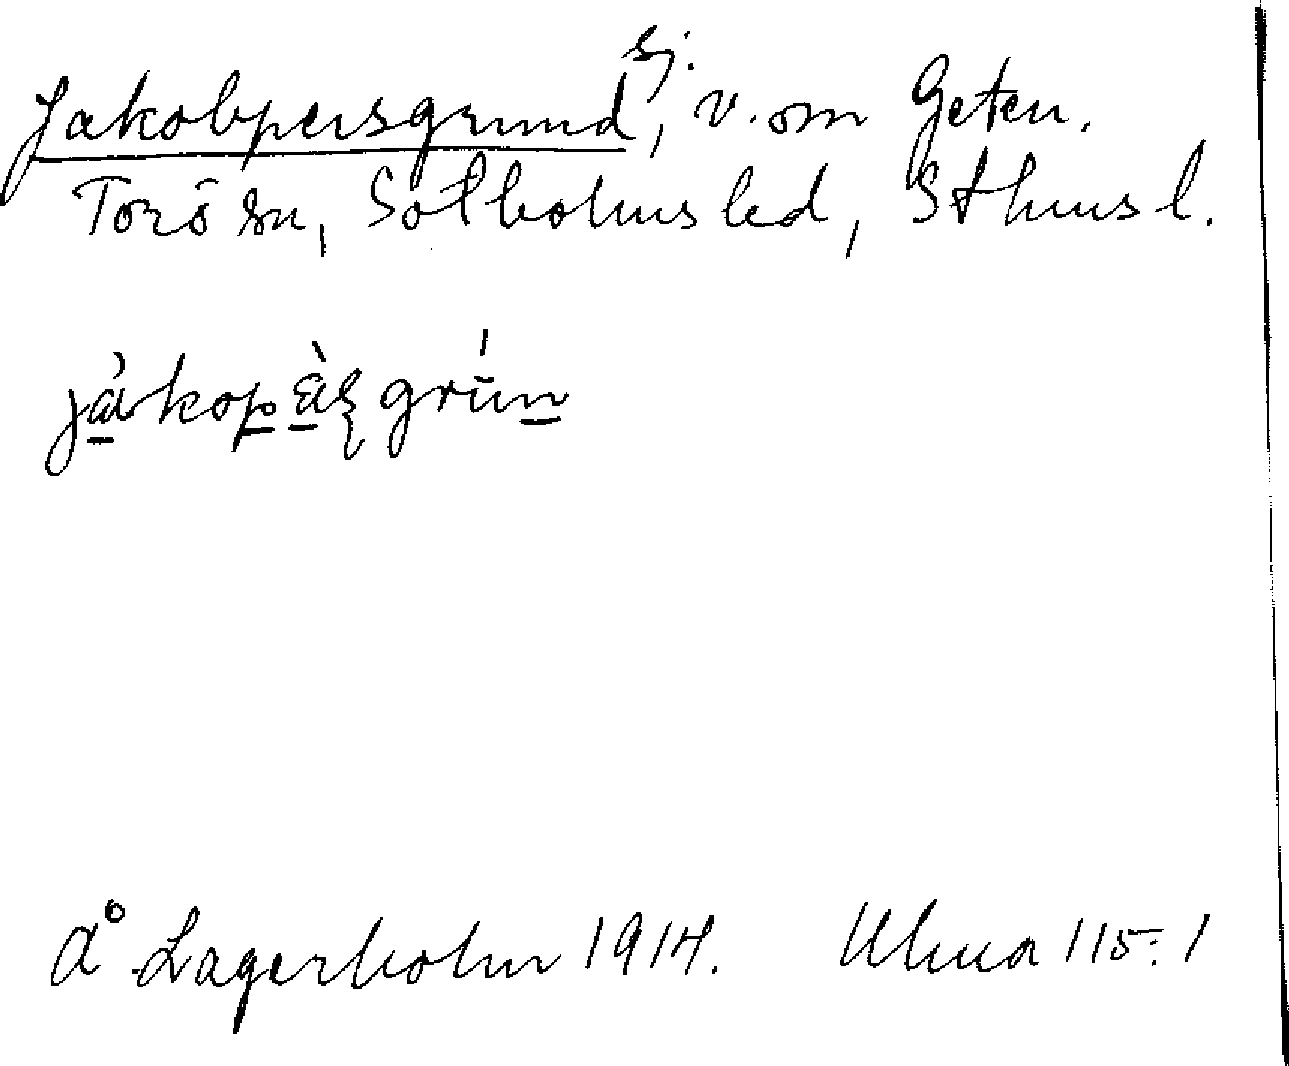 Jakobpersgrund sj., v. om Geten.
Torö sn, Sotholms hd, Sthms l.
Å Lagerholm 1914. Uhma 115:1